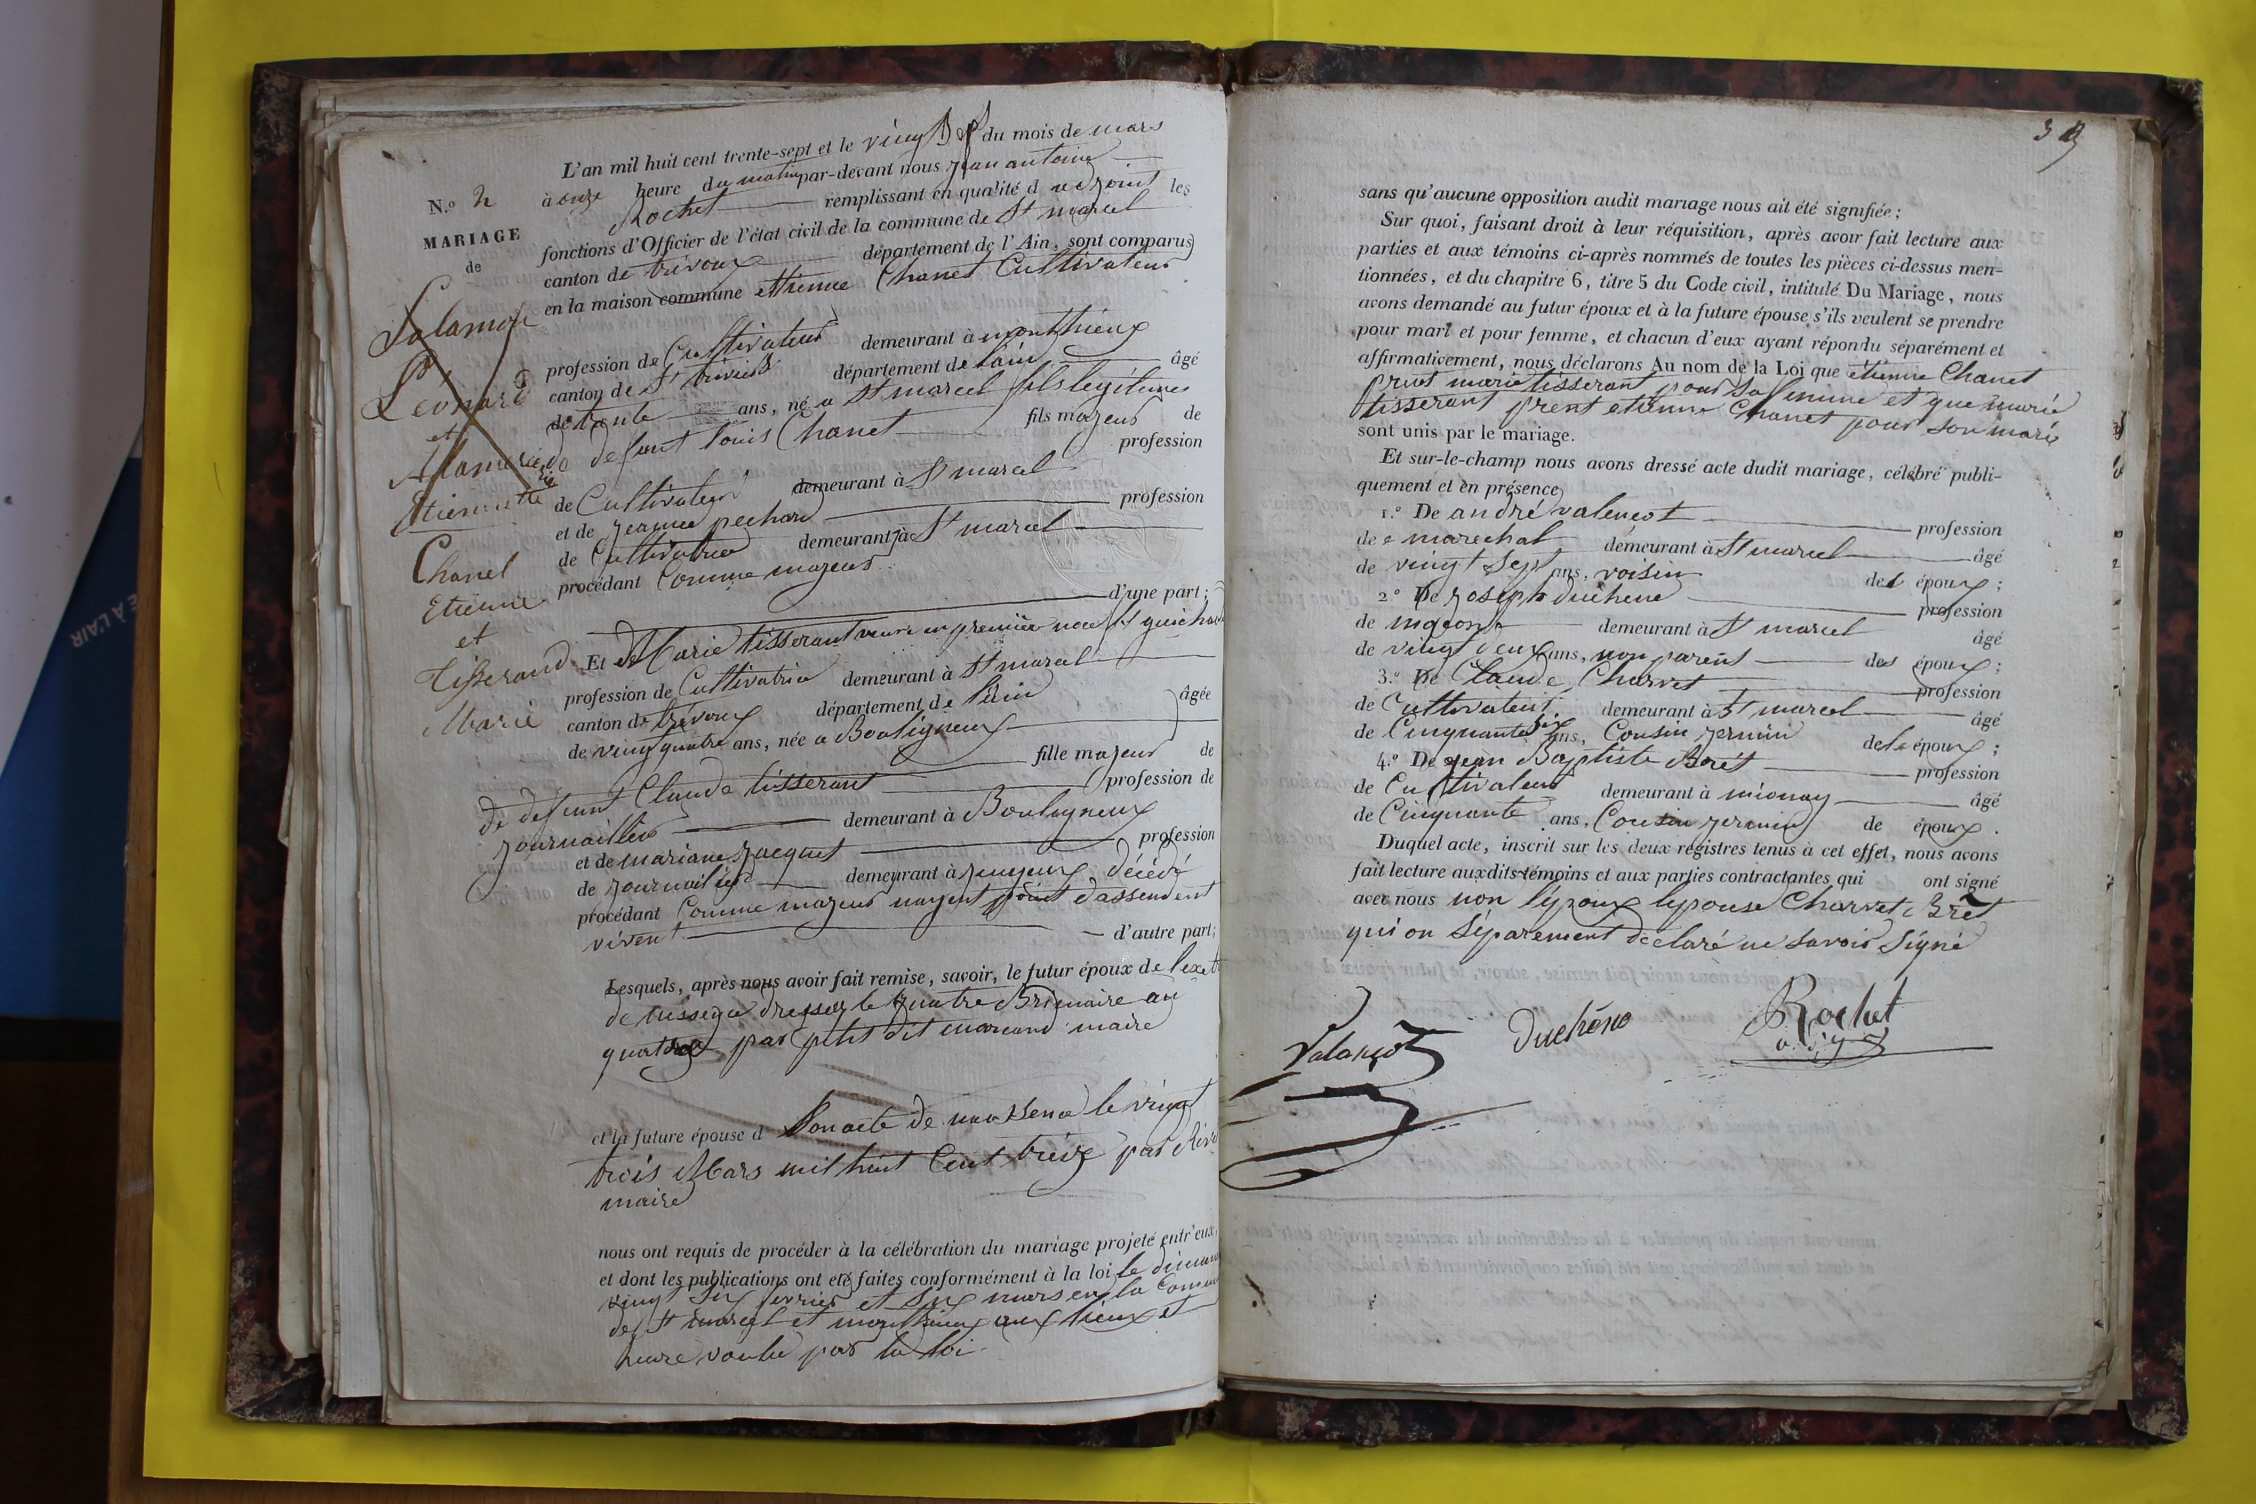 L'an mil huit cent trente-sept et le vingt sept du mois de mars
N.o 2 à onze heure du matin par-devant nous jean antoine
Rochet remplissant en qualité d adjoint les
MARIAGE fonctions d'Officier de l'état civil de la commune de St marcel
de canton de trévoux département de l'Ain, sont comparus
en la maison commune ettienne Chanel Cultivateur
Salamon
Léonard
et
Etiennette
Chanel
Etienne
et
Tisserand
Marie
profession de Cultivateur demeurant à monthieux
canton de St triviers département de lain âgé
de trente ans, né a St marcel fils legitime
de defunt louis Chanel fils majeur de
profession
de Cultivateur demeurant à St marcel
et de jeanne pechard profession
de Cultivatrice demeurant à St marcel
procédant Comme majeur
d'une part;
Et de Marie tisserant veuve en premiere noce
profession de Cultivatrice demeurant à St marcel
canton de trévoux département de lain âgée
de vingt quatre ans, née a Bouligneux
fille majeur de
de defunt Claude tisserant profession de
journaillier demeurant à Bouligneux
et de mariane jacquet profession
de journailiere demeurant à décédé
procédant Comme majeur nayent point dassendent
vivent d'autre part;
Lesquels, après nous avoir fait remise, savoir, le futur époux de
de nissence dressez le quatre Brimaire an
quatorze par petit dit marcand maire
et la future épouse d Son acte de naissence le vingt
trois Mars mil huit Cent treize par
maire
nous ont requis de procéder à la célébration du mariage projeté entr'eux,
et dont les publications ont été faites conformément à la loi le
vingt six fevrier et six mars en la
de St marcel et monthieux aux lieux et
heure voulu par la loi
3
sans qu'aucune opposition audit mariage nous ait été signifiée;
Sur quoi, faisant droit à leur réquisition, après avoir fait lecture aux
parties et aux témoins ci-après nommés de toutes les pièces ci-dessus men-
tionnées, et du chapitre 6, titre 5 du Code civil, intitulé Du Mariage, nous
avons demandé au futur époux et à la future épouse s'ils veulent se prendre
pour mari et pour femme, et chacun d'eux ayant répondu séparément et
affirmativement, nous déclarons Au nom de la Loi que étienne Chanel
prent marie tisserant pour sa femme et que marie
tisserant prent etienne Chanel pour son marie
sont unis par le mariage.
Et sur-le-champ nous avons dressé acte dudit mariage, célébré publi-
quement et en présence
1.o De andré valençot profession
de marechal demeurant à St marcel âgé
de vingt sept ans, voisin des époux;
2.o De joseph duchene profession
de maçon demeurant à St marcel âgé
de vingt deux ans, non parent des époux;
3.o De Claude Charvet profession
de Cultivateur demeurant à St marcel âgé
de Cinquante six ans, Cousin jermin de le époux;
4.o De jean Baptiste Brét profession
de Cultivateur demeurant à mionay âgé
de Cinquante ans, Cousin jermin de époux.
Duquel acte, inscrit sur les deux registres tenus à cet effet, nous avons
fait lecture auxdits témoins et aux parties contractantes qui ont signé
avec nous non lépoux lepouse Charvet Brét
qui on séparement déclaré ne savoir signé
Valançot Duchéne Rochet